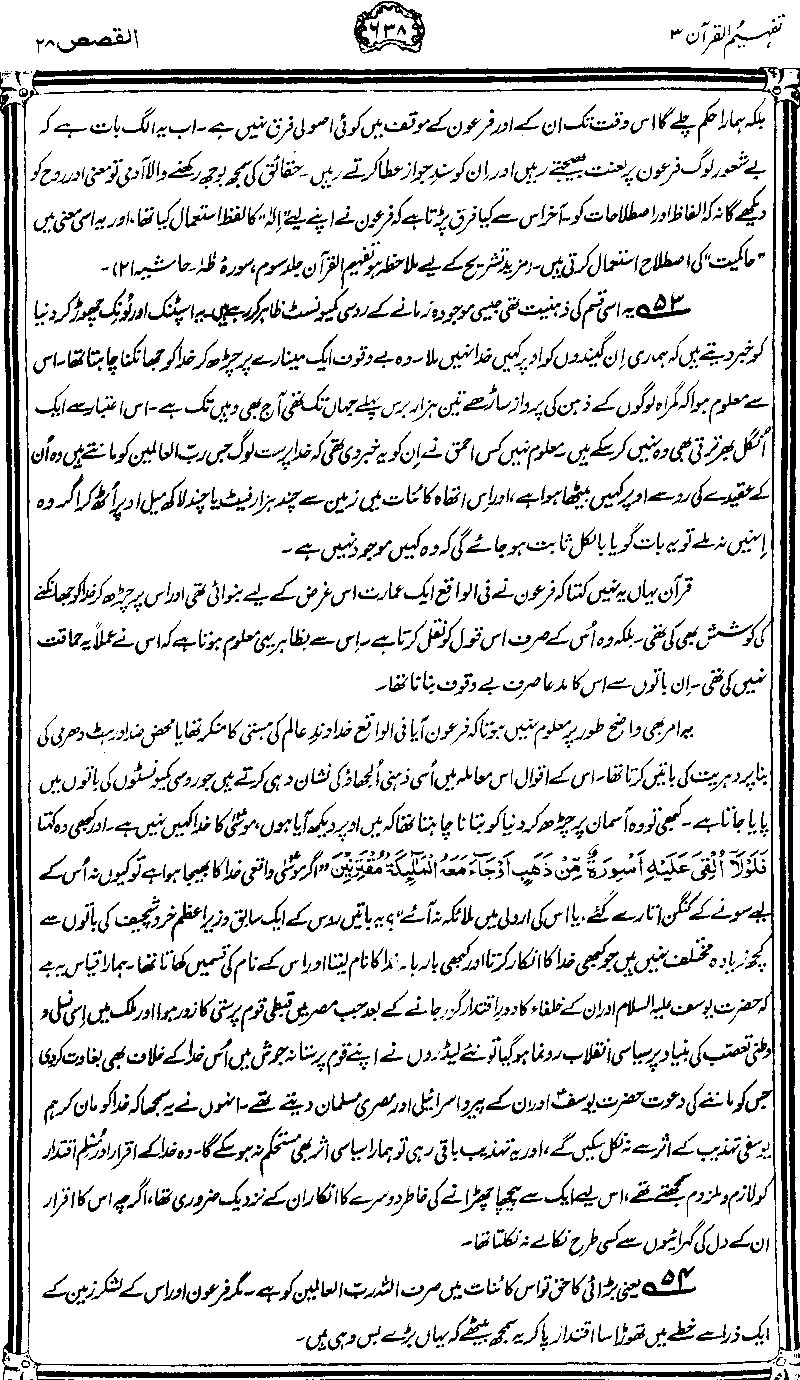 تفہیم القرآن ۳
۶۳۸
القصص ۲۸
بلکہ ہمارا حکم چلے گا اس وقت تک ان کے اور فرعون کے موقف میں کوئی اصولی فرق نہیں ہے۔ اب یہ الگ بات ہے کہ
بے شعور لوگ فرعون پر لعنت بھیجتے رہیں اور ان کو سندِ جواز عطا کرتے رہیں۔ حقائق کی سمجھ بوجھ رکھنے والا آدمی تو معنی اور روح کو
دیکھے گا نہ کہ الفاظ اور اصطلاحات کو۔ آخر اس سے کیا فرق پڑتا ہے کہ فرعون نے اپنے لیے "الٰہ" کا لفظ استعمال کیا تھا، اور یہ اسی معنی میں
"حاکمیت" کی اصطلاح استعمال کرتی ہیں۔ (مزید تشریح کے لیے ملاحظہ ہو تفہیم القرآن جلد سوم، سورۂ طٰہٰ۔ حاشیہ ۲۱)۔
۵۳ یہ اسی قسم کی ذہنیت تھی جیسی موجودہ زمانے کے روسی کمیونسٹ ظاہر کر رہے ہیں۔ یہ اسپٹنک اور لونک چھوڑ کر دنیا
کو خبر دیتے ہیں کہ ہماری اِن گیندوں کو اوپر کہیں خدا نہیں ملا۔ وہ بے وقوف ایک مینارے پر چڑھ کر خدا کو جھانکنا چاہتا تھا۔ اس
سے معلوم ہوا کہ گمراہ لوگوں کے ذہن کی پرواز ساڑھے تین ہزار برس پہلے جہاں تک تھی آج بھی وہیں تک ہے۔ اس اعتبار سے ایک
اُنگل بھر ترقی بھی وہ نہیں کر سکے ہیں۔ معلوم نہیں کس احمق نے اِن کو یہ خبر دی تھی کہ خدا پرست لوگ جس ربّ العالمین کو مانتے ہیں وہ اُن
کے عقیدے کی رو سے اوپر کہیں بیٹھا ہوا ہے، اور اِس اتھاہ کائنات میں زمین سے چند ہزار فیٹ یا چند لاکھ میل اوپر اُٹھ کر اگر وہ
اِنہیں نہ ملے تو یہ بات گویا بالکل ثابت ہو جائے گی کہ وہ کہیں موجود نہیں ہے۔
قرآن یہاں یہ نہیں کہتا کہ فرعون نے فی الواقع ایک عمارت اس غرض کے لیے بنوائی تھی اور اس پر چڑھ کر خدا کو جھانکنے
کی کوشش بھی کی تھی۔ بلکہ وہ اُس کے صرف اس قول کو نقل کرتا ہے۔ اِس سے بظاہر یہی معلوم ہوتا ہے کہ اس نے عملاً یہ حماقت
نہیں کی تھی۔ اِن باتوں سے اس کا مدعا صرف بے وقوف بنانا تھا۔
یہ امر بھی واضح طور پر معلوم نہیں ہوتا کہ فرعون آیا فی الواقع خداوندِ عالم کی ہستی کا منکر تھا یا محض ضد اور ہٹ دھرمی کی
بنا پر دہریت کی باتیں کرتا تھا۔ اس کے اقوال اس معاملہ میں اُسی ذہنی اُلجھاؤ کی نشان دہی کرتے ہیں جو روسی کمیونسٹوں کی باتوں میں
پایا جاتا ہے۔ کبھی تو وہ آسمان پر چڑھ کر دنیا کو بتانا چاہتا تھا کہ میں اوپر دیکھ آیا ہوں، موسٰیؑ کا خدا کہیں نہیں ہے۔ اور کبھی وہ کہتا
فَلَوْلَا أُلْقِيَ عَلَيْهِ أَسْوِرَةٌ مِّن ذَهَبٍ أَوْ جَاءَ مَعَهُ الْمَلَائِكَةُ مُقْتَرِنِينَ "اگر موسٰیؑ واقعی خدا کا بھیجا ہوا ہے تو کیوں نہ اُس کے
لیے سونے کے کنگن اُتارے گئے، یا اس کی اردلی میں ملائکہ نہ آئے"؟ یہ باتیں روس کے ایک سابق وزیر اعظم خروشچیف کی باتوں سے
کچھ زیادہ مختلف نہیں ہیں جو کبھی خدا کا انکار کرتا اور کبھی بار بار خدا کا نام لیتا اور اس کے نام کی قسمیں کھاتا تھا۔ ہمارا قیاس یہ ہے
کہ حضرت یوسف علیہ السلام اور ان کے خلفاء کا دورِ اقتدار گزر جانے کے بعد جب مصر میں قبطی قوم پرستی کا زور ہوا اور ملک میں اِسی نسلی و
وطنی تعصب کی بنیاد پر سیاسی انقلاب رونما ہو گیا تو نئے لیڈروں نے اپنے قوم پرستانہ جوش میں اُس خدا کے خلاف بھی بغاوت کر دی
جس کو ماننے کی دعوت حضرت یوسفؑ اور ان کے پیرو اسرائیلی اور مصری مسلمان دیتے تھے۔ انہوں نے یہ سمجھا کہ خدا کو مان کر ہم
یوسفی تہذیب کے اثر سے نہ نکل سکیں گے، اور یہ تہذیب باقی رہی تو ہمارا سیاسی اثر بھی مستحکم نہ ہو سکے گا۔ وہ خدا کے اقرار اور مُسلم اقتدار
کو لازم و ملزوم سمجھتے تھے، اس لیے ایک سے پیچھا چھڑانے کی خاطر دوسرے کا انکار ان کے نزدیک ضروری تھا، اگرچہ اس کا اقرار
ان کے دل کی گہرائیوں سے کسی طرح نکالے نہ نکلتا تھا۔
۵۴ یعنی بڑائی کا حق تو اس کائنات میں صرف اللہ ربّ العالمین کو ہے۔ مگر فرعون اور اس کے لشکر زمین کے
ایک ذرا سے خطے میں تھوڑا سا اقتدار پا کر یہ سمجھ بیٹھے کہ یہاں بڑے بس وہی ہیں۔